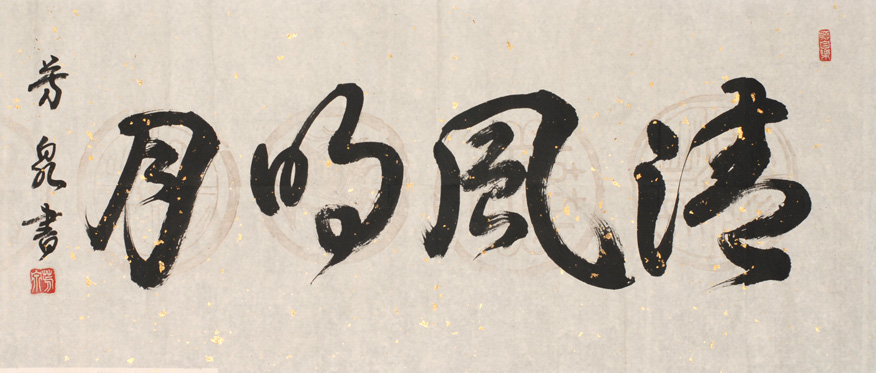 清風明月
芳泉書